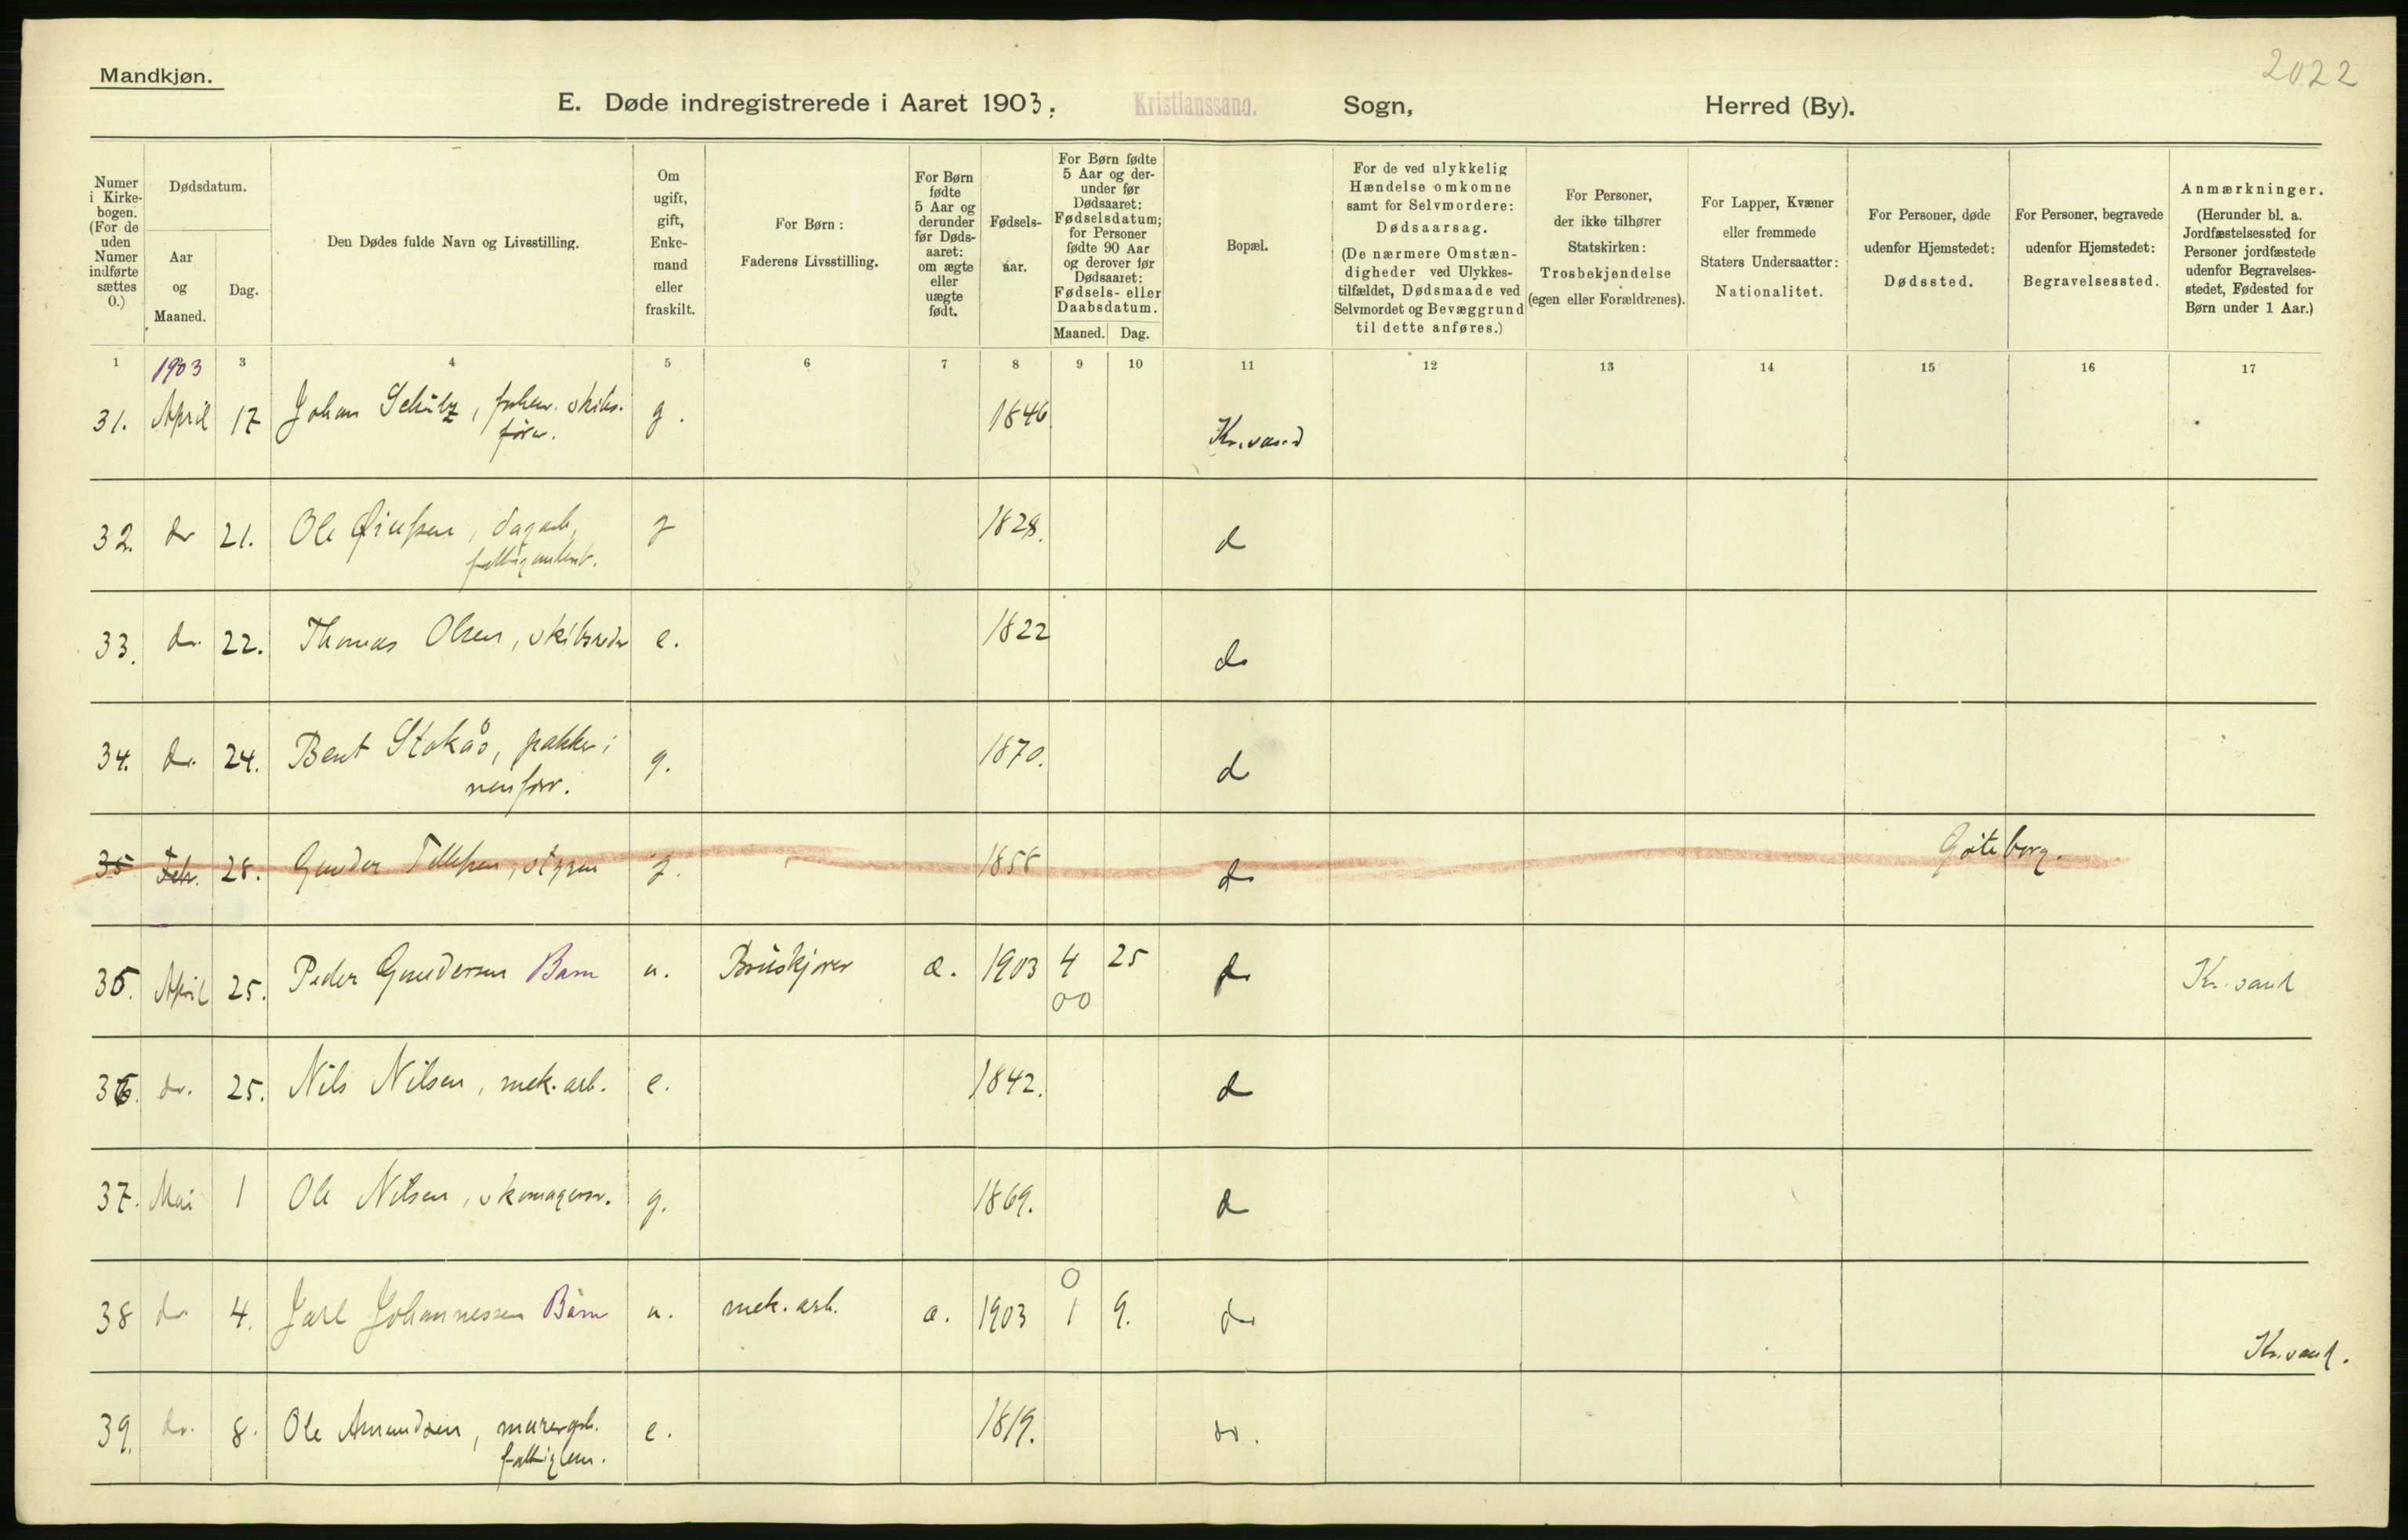 Mandkjøn.
2022
E. Døde indregistrerede i Aaret 1903. Kristianssand. Sogn, Herred (By).
Numer i Kirke-bogen. (For de uden Numer indførte sættes 0.)
Dødsdatum.
Aar og Maaned.
Dag.
Den Dødes fulde Navn og Livsstilling.
Om ugift, gift, Enke-mand eller fraskilt.
For Børn:
Faderens Livsstilling.
For Børn fødte 5 Aar og derunder før Døds-aaret: om ægte eller uægte født.
Fødsels-aar.
For Børn fødte 5 Aar og der-under før Dødsaaret: Fødselsdatum; for Personer fødte 90 Aar og derover før Dødsaaret: Fødsels- eller Daabsdatum.
Maaned. Dag.
Bopæl.
For de ved ulykkelig Hændelse omkomne samt for Selvmordere: Dødsaarsag.
(De nærmere Omstæn-digheder ved Ulykkes-tilfældet, Dødsmaade ved Selvmordet og Bevæggrund til dette anføres.)
For Personer, der ikke tilhører Statskirken: Trosbekjendelse (egen eller Forældrenes).
For Lapper, Kvæner eller fremmede Staters Undersaatter: Nationalitet.
For Personer, døde udenfor Hjemstedet: Dødssted.
For Personer, begravede udenfor Hjemstedet: Begravelsessted.
Anmærkninger.
(Herunder bl. a. Jordfæstelsessted for Personer jordfæstede udenfor Begravelses-stedet, Fødested for Børn under 1 Aar.)
1 1903 3 4 5 6 7 8 9 10 11 12 13 14 15 16 17
31. April 17 Johan Schulz, skibs. g. 1846 Kr.sand
fører.
32. do 21. Ole, dagarb, g 1828. do
33. do. 22. Thomas Olsen, skibsreder e. 1822 do
34. do. 24. Bent Stokås, pakker i g. 1870. do
35 Feb. 28. Gunder Tellefsen, styrm g. 1858 do Göteborg.
35. April 25. Peder Gundersen Barn u. Bruskjører æ. 1903 4 25 do Kr.sand
00
36. do. 25. Nils Nilsen, mek. arb. e. 1842. do
37. Mai 1 Ole Nilsen, skomagersv. g. 1869. do
0
38 do 4. Jarl Johannessen Barn u. mek. arb. æ. 1903 1 9. do Kr.sand.
39. do. 8. Ole Amundsen, murerarb. e. 1819. do.
fattiglem.